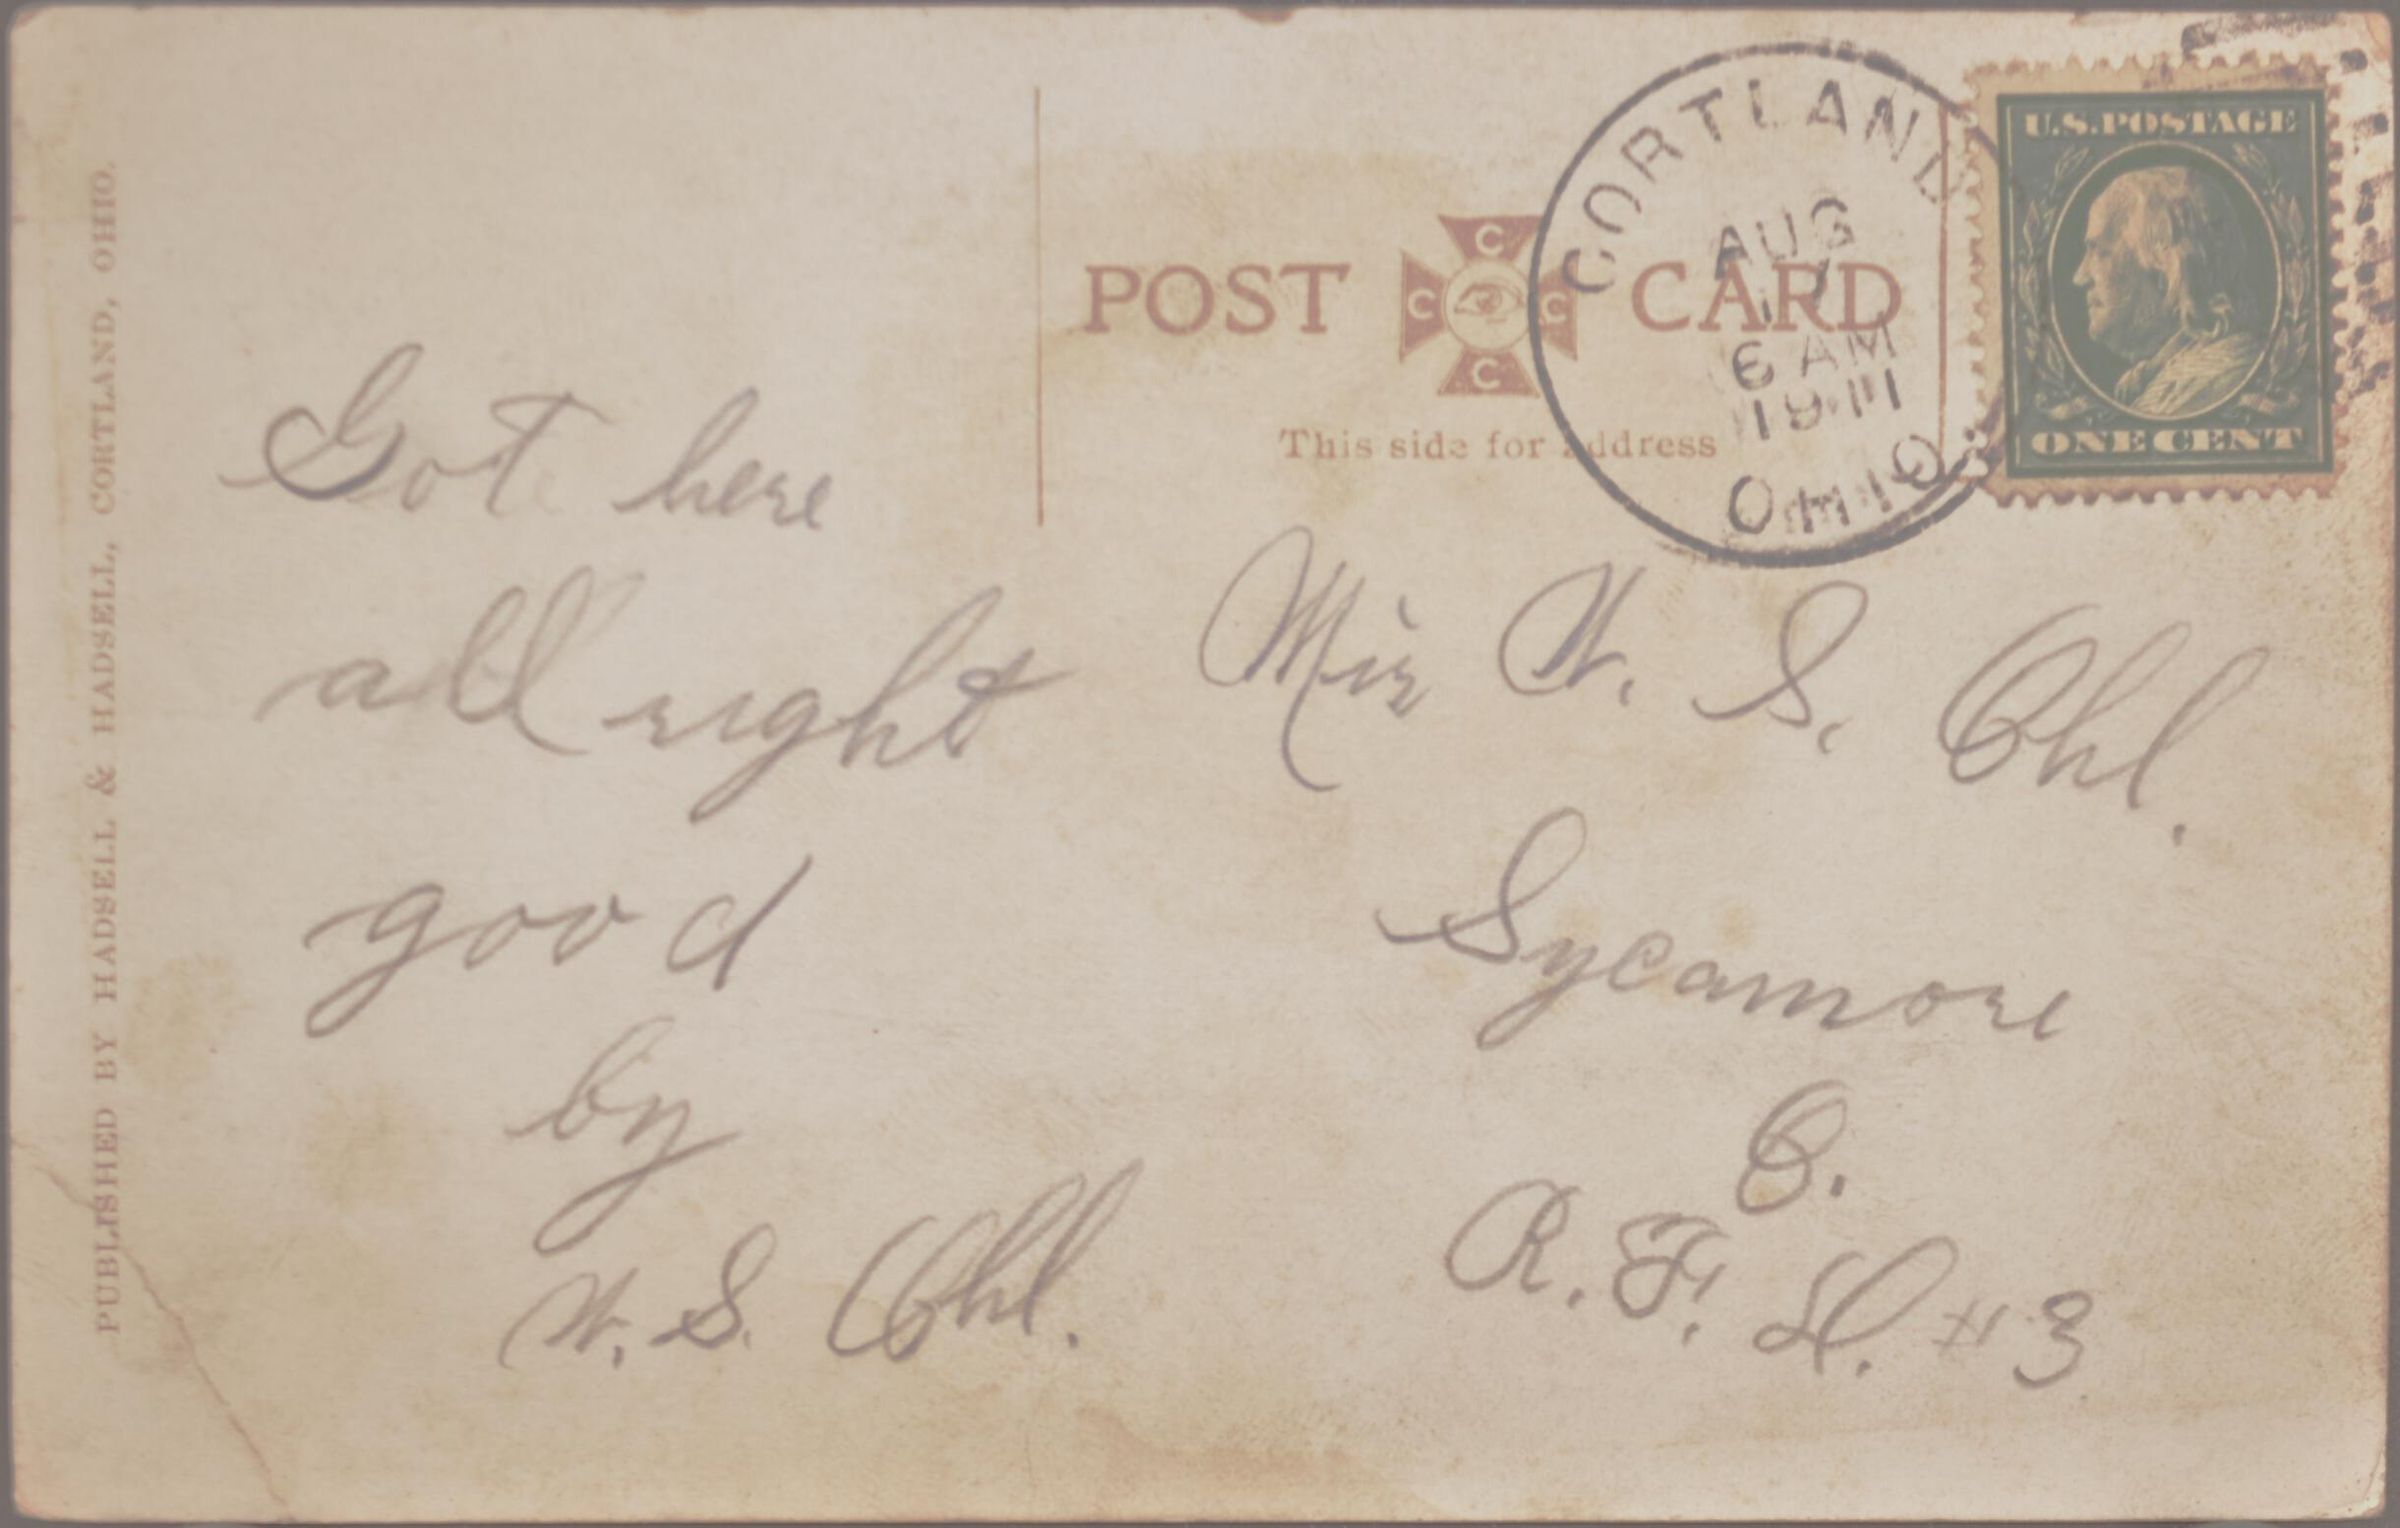 PUBLISHED BY HADSELL & HADSELL, CORTLAND, OHIO.
Got here
all right
good
by
W. S. Ohl.
POST CARD
C
C C
C
This side for address
CORTLAND
AUG
6 AM
1911
OHIO
U.S. POSTAGE
ONE CENT
W. S. Ohl.
Sycamore
O.
R. F. D. #3